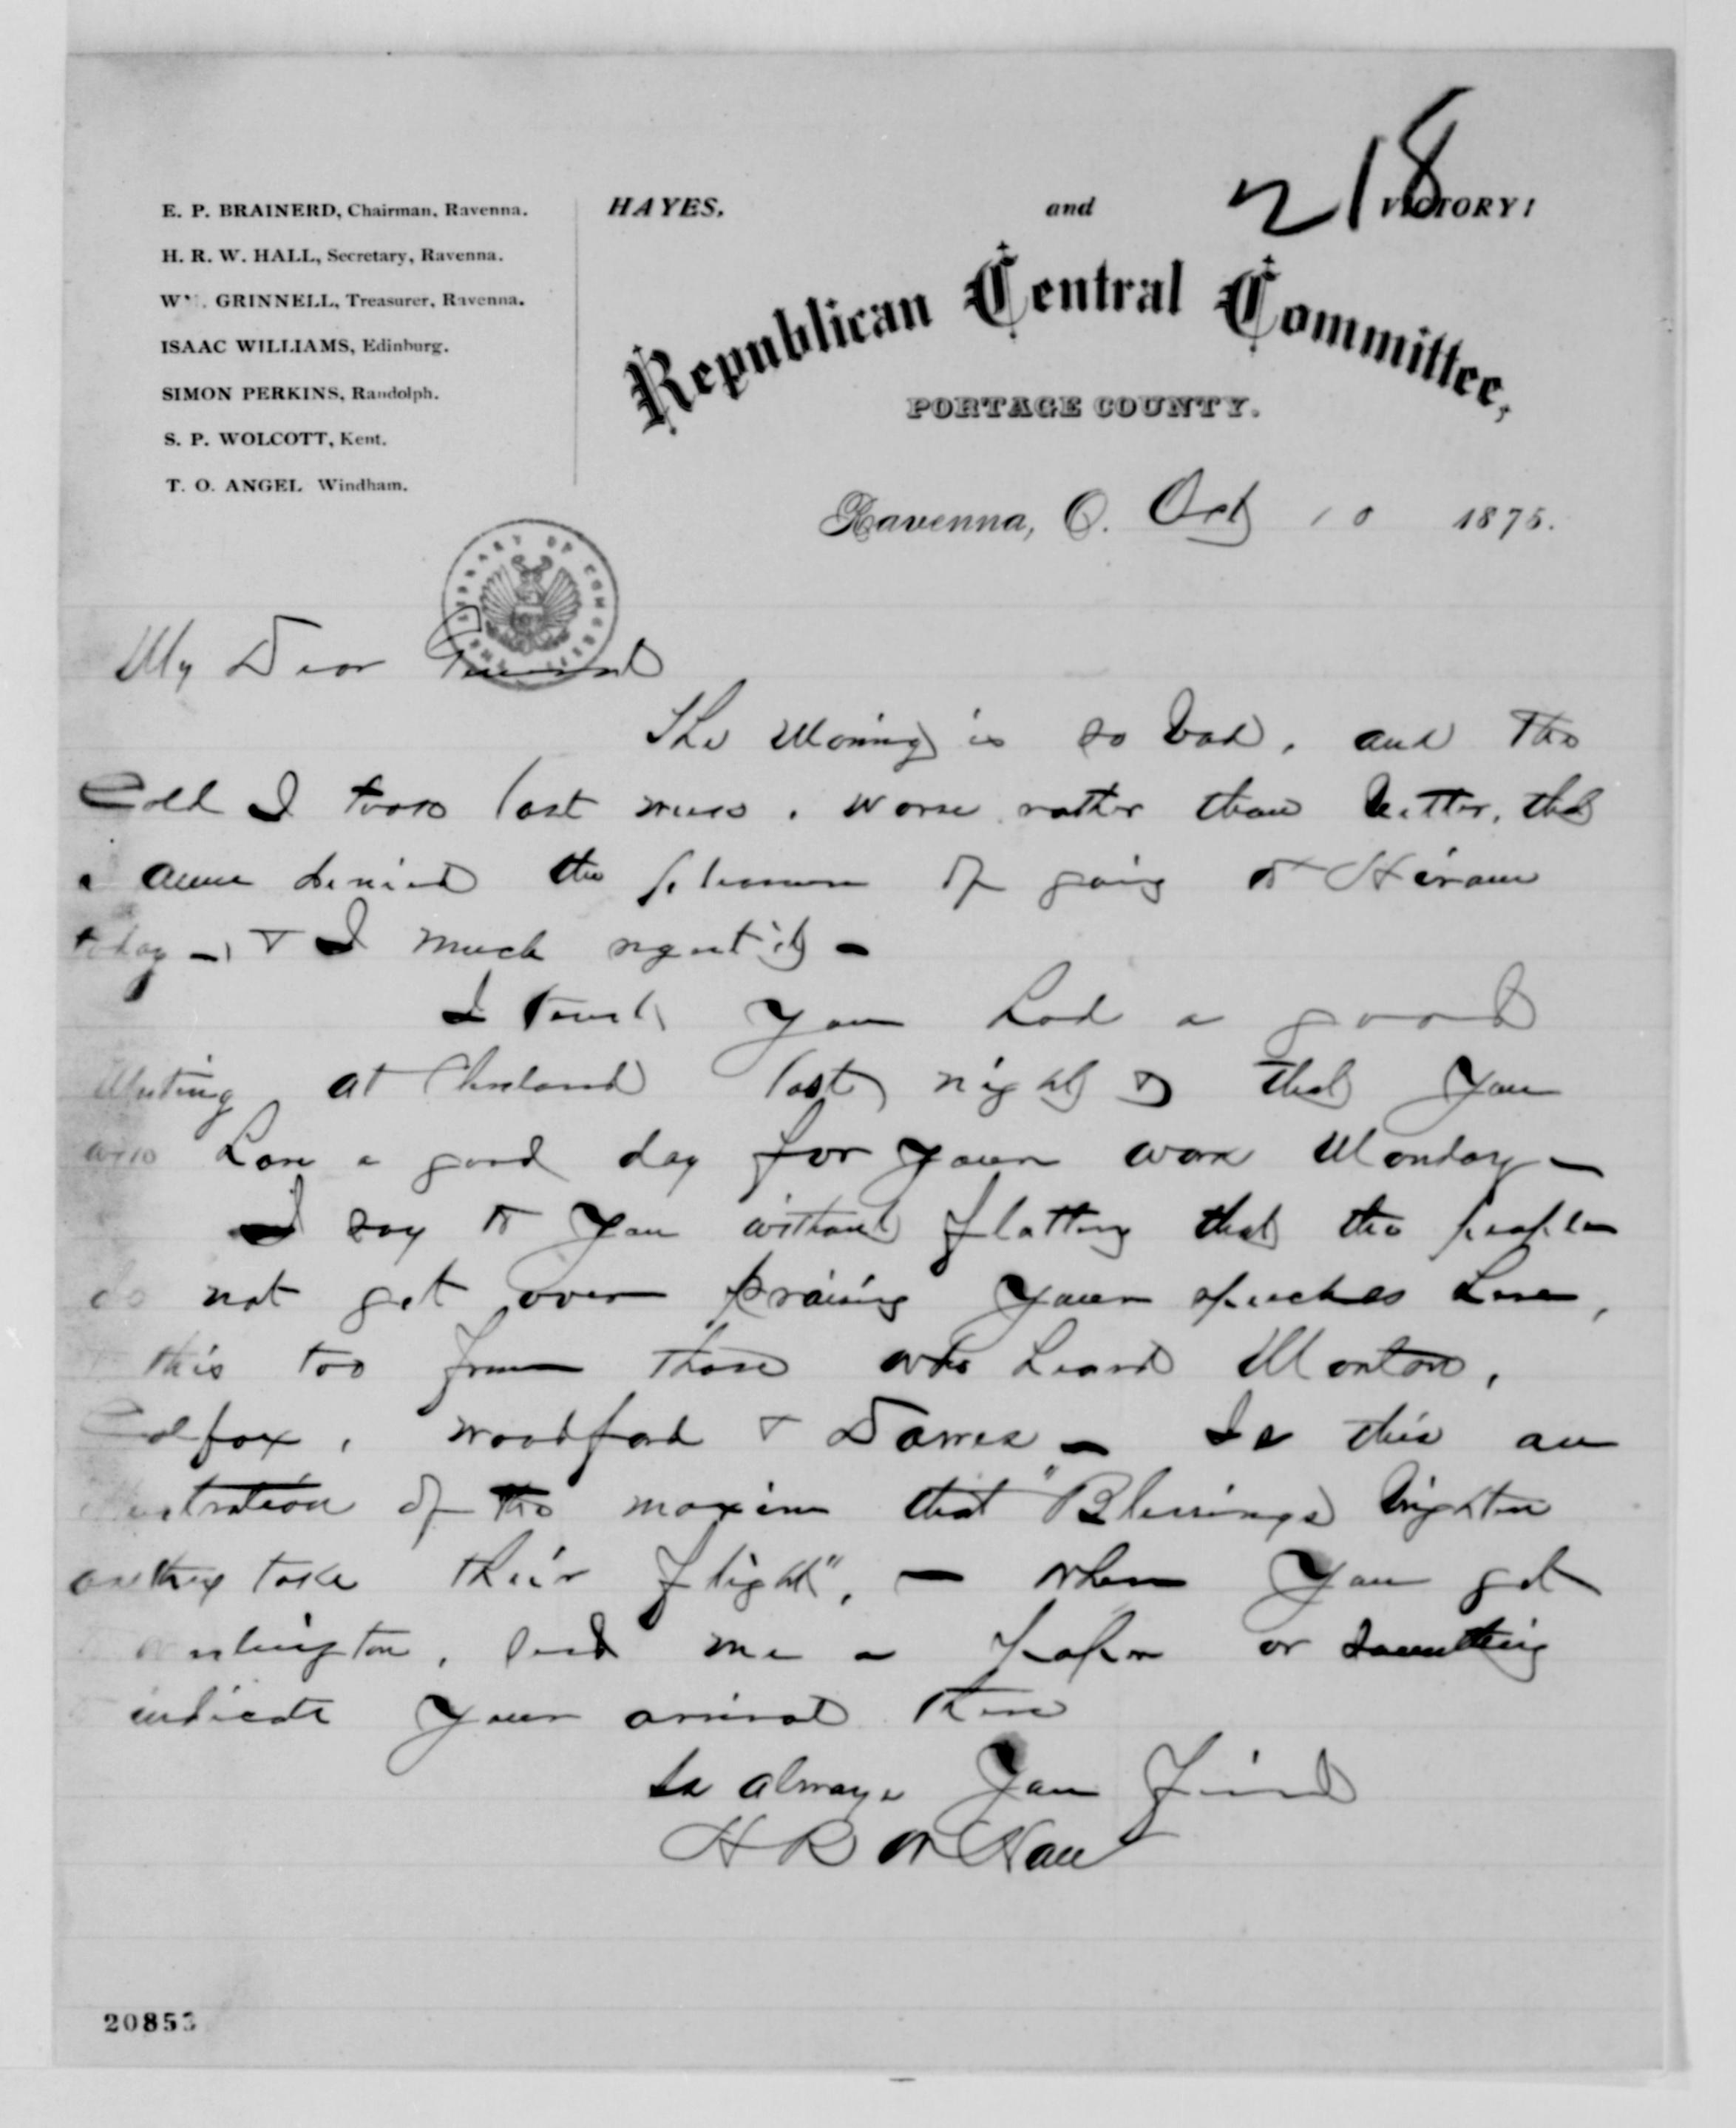 218
E. P. BRAINERD, Chairman, Ravenna.
H. R. W. HALL, Secretary, Ravenna.
WM. GRINNELL, Treasurer, Ravenna.
ISAAC WILLIAMS, Edinburg.
SIMON PERKINS, Randolph.
S. P. WOLCOTT, Kent.
T. O. ANGEL Windham.
HAYES, and VICTORY!
Republican Central Committee,
PORTAGE COUNTY.
Ravenna, O. Oct 10 1875.
LIBRARY OF CONGRESS
My Dear General
The Morning is so bad, and the
Cold I took last week, worse rather than better, that
I am denied the pleasure of going to Hiram
today - & I much regret it -
I trust you had a good
Meeting at Cleveland last night & that you
will have a good day for your work Monday -
I say to you without flattery that the people
do not get over praising your speeches here,
this too from those who heard Morton,
Colfax, Woodford & Dawes - Is this an
illustration of the maxim that "Blessings brighten
as they take their flight", - when you get
to Washington, send me a paper or something
to indicate your arrival there
As always Your Friend
H R W Hall
20853